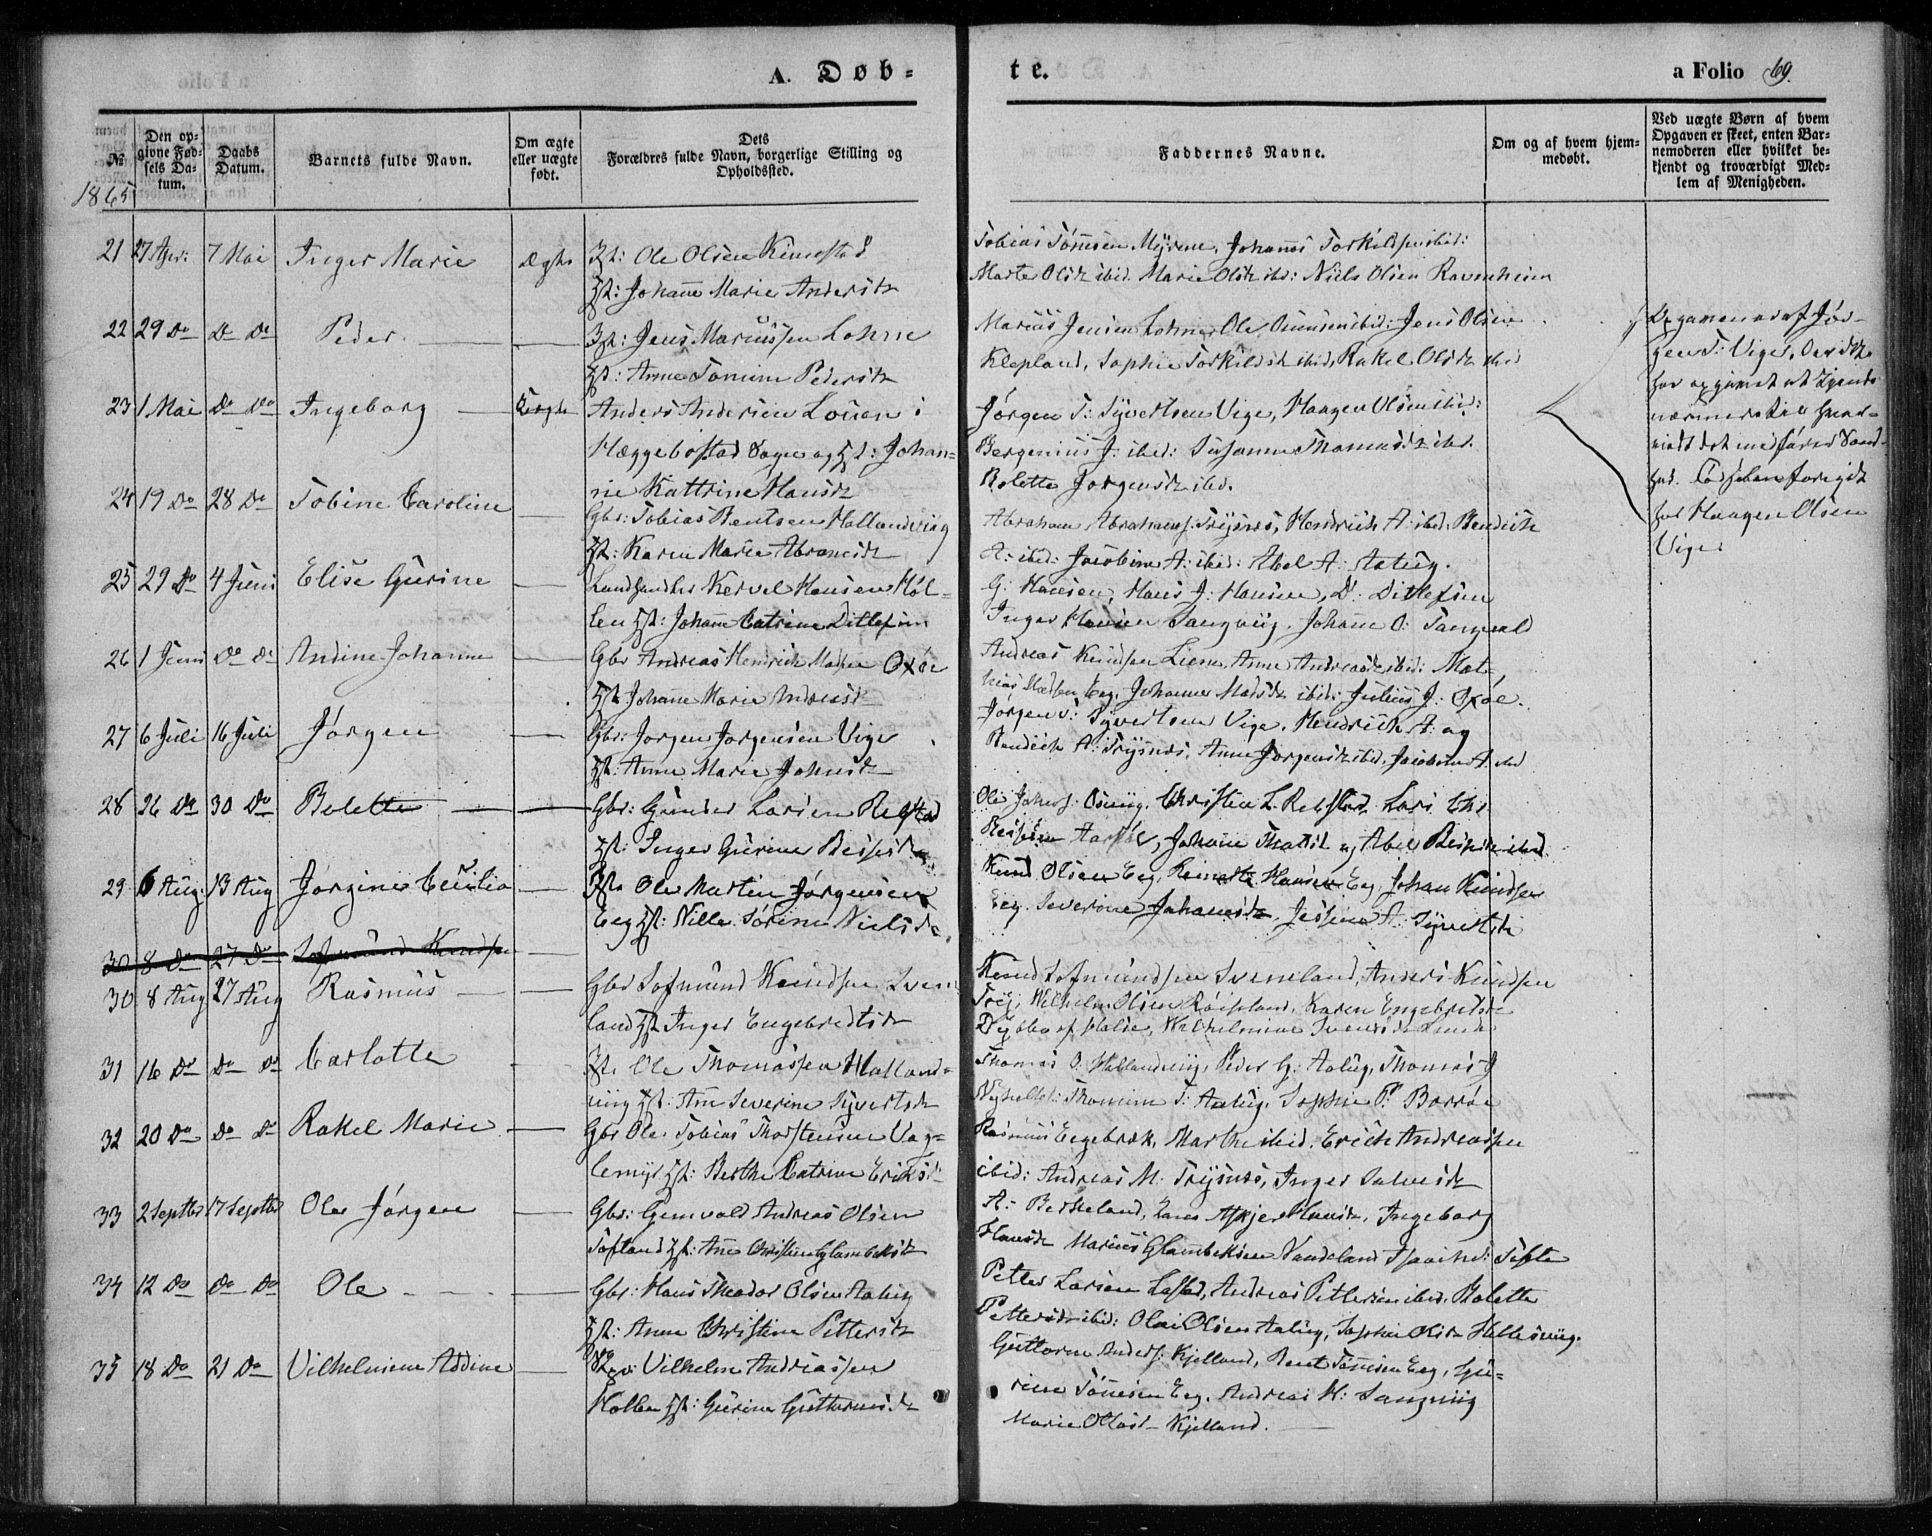 A. Døb-
te.
a Folio 69.
№
Den op-
givne Fød-
sels Da-
tum.
Daabs
Datum.
Barnets fulde Navn.
Om ægte
eller uægte
født.
Dets
Forældres fulde Navn, borgerlige Stilling og
Opholdssted.
Faddernes Navne.
Om og af hvem hjem-
medøbt.
Ved uægte Børn af hvem
Opgaven er skeet, enten Bar-
nemoderen eller hvilket be-
kjendt og troværdigt Med-
lem af Menigheden.
1865
21 27 Apr: 7 Mai Inger Marie Ægte Ole Olsen
Johanne Marie Andersdt
Tobias Tønnesen Myrene, Johannes Torkildsen ibid:
Marte Olsdt ibid. Marie Olsdt ibid: Niels Olsen Ravnheien
22 29 Do Do Do Peder. Jens Mariussen Lohne
Anne Tomine Pedersdt
Marius Jensen Lohne, Ole ibid: Jens Olsen
Klepland, Sophie Torkildsdt ibid, Rakel Olsdt ibid
23 1 Mai Do Do Ingeborg Uægte Anders Andersen Louen i
Hæggebostad Sogn og Johan-
ne Kattrine Hansdt
Jørgen T: Syvertsen Vige, Haagen Olsen ibid:
Bergenius J: ibid: Susanne Thomasdt ibid.
Bolette Jørgensdt ibid.
Opgaven er af Jør-
gen T: Vige, Ovidt
har opgivet at
nærmer
det
had.
for Haagen Olsen
Vige.
24 19 Do 28 Do Tobine Caroline Gbr: Tobias Bentsen Hallandviig
Karen Marie Abramsdt
Abraham Abrahams. Trysnes, Hendrich A: ibid. Bendich
A: ibid: Jacobine A: ibid: Abel A: Aalvig.
25 29 Do 4 Juni Elise Gurine Landhandler Hansen Høl-
len Johanne Catrine Ditlefsen
G: Hansen, Hans J: Hansen, D. Ditlefsen
Inger Hansen Langviig, Johanne O: Tangvald
26 1 Juni Do do Andine Johanne Gbr Andreas Hendrich Madsen Oxøe
Johanne Marie Andreasdt
Andreas Knudsen Lien, Anne Andreasdt ibid: Mat-
hias Madsen Eeg, Johanne Madsdt ibid: Julius J: Oxøe.
27 6 Juli 16 Juli Jørgen Gbr: Jørgen Jørgensen Vige
Anne Marie Johnsdt
Jørgen T: Syvertsen Vige, Hendrich A: og
Bendich A: Trysnes, Anne Jørgensdt ibid, Jacobine A. ibid
28 26 Do 30 Do Bolette Gbr: Gunder Larsen Refstad
Inger Gurine
Ole Johns: Osviig, Christen L. Refstad, Lars Chr
Johanne og Abel ibid
29 6 Aug. 13 Aug Jørgine Cecilia Ole Martin Jørgensen
Eeg Nille Sørine Nielsdt
Knud Olsen Eeg, Reinerth Hansen Eeg, Johan Knudsen
Eeg, Severine Johansdt, Jessine A. Syvertsdt
30 8 Do 27 Do Sofmund Knudsen
30 8 Aug 27 Aug Rasmus Gbr Sofmund Knudsen Svene-
land Inger Engebredtsdt
Knud Sofmundsen Sveneland, Anders Knudsen
Wilhelm Olsen Røiseland, Karen Engebretsdt
af Halse, Wilhelmine
31 16 Do Do Do Carlotte Ole Thomassen Halland-
viig Ane Severine Syvertsdt
Thomas O. Hallandviig, Peder G: Aalvig, Thomas J
Thomine T: Aalvig, Sophie P: Borrøe
32 20 Do Do do Rakel Marie Gbr Ole Tobias Thorstensen Vag-
lemyr Berthe Catrine Eriksdt
Rasmus Eegebræk, Marthe ibid. Erich Andreassen
ibid: Andreas M. Trysnes, Inger Salvesdt
33 2 Septbr 17 Septbr Ole Jørgen Gbr: Gunvald Andreas Olsen
Toftland Ane Christine Glambeksdt
A: Berkeland, Lars Hansdt, Ingeborg
Hansdt Marius Glambeksen Vandeland
34 12 Do Do Do Ole Gbr: Hans Theodor Olsen Aalvig
Anne Christine Pettersdt
Petter Larsen Lastad, Andreas Pettersen ibid. Bolette
Pettersdt ibid: Olai Olsen Aalvig, Sophie Olsdt Hellesviig.
35 18 Do 21 Do Vilhelmine Adine Vilhelm Andreassen
Kolben Gurine Guttormsdt
Guttorm Anders. Kjelland, Bernt Tønnesen Eeg, Gu-
rine Tønnesen Eeg. Andreas H: Langviig
Marie Kjelland.